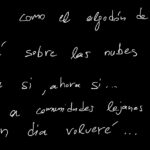 como el algodón de
sobre las nubes
si, ahora si...
a comunidades lejanas
día volveré...